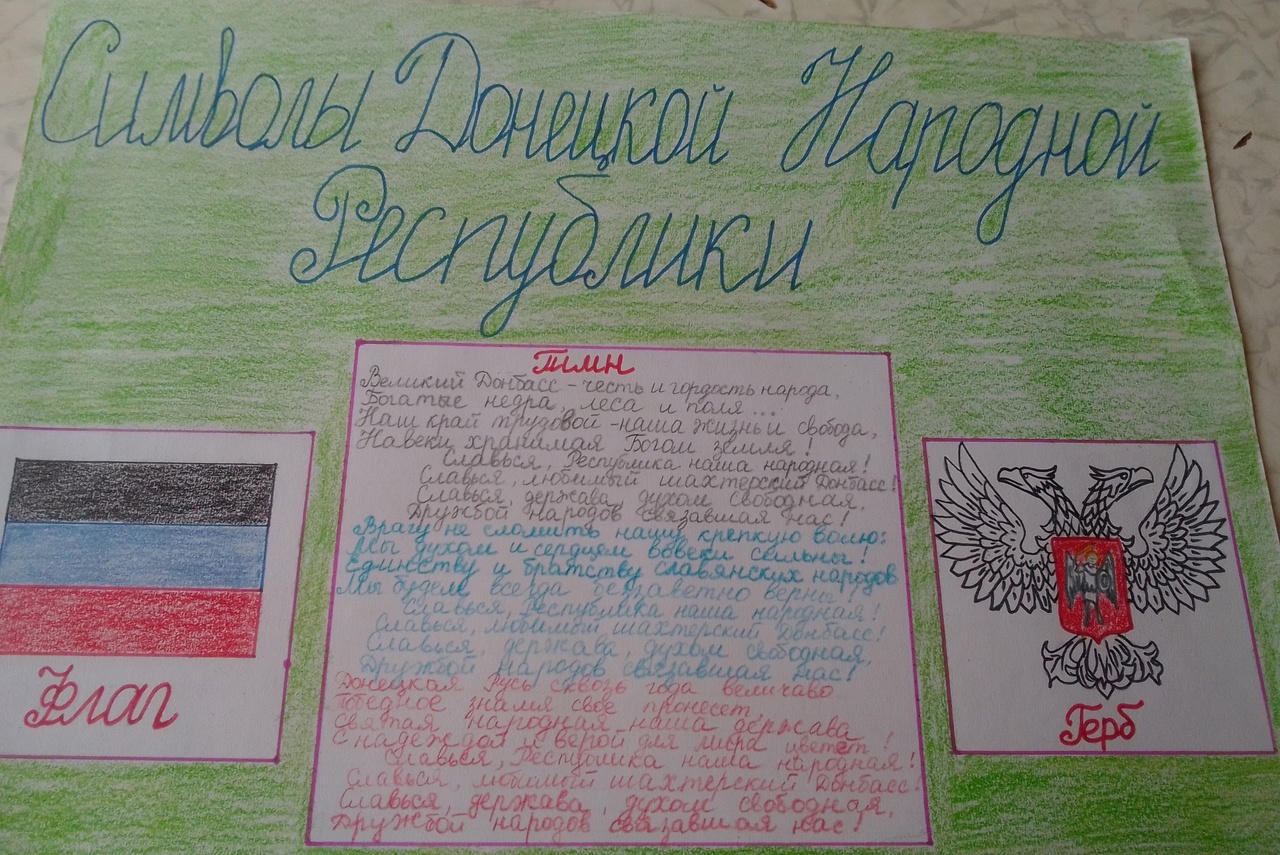 Символы Донецкой Народной
Республики
Гимн
Великий Донбасс - честь и гордость народа,
Богатые недра, леса и поля...
Наш край трудовой - наша жизнь и свобода,
Навеки хранимая Богом земля!
Славься, Республика наша народная!
Славься, любимый шахтерский Донбасс!
Славься, держава, духом свободная,
Дружбой народов связавшая нас!
Врагу не сломить нашу крепкую волю:
Мы духом и сердцем вовеки сильны!
Единству и братству славянских народов
Мы будем всегда беззаветно верны!
Славься, Республика наша народная!
Славься, любимый шахтерский Донбасс!
Славься, держава, духом свободная,
Дружбой народов связавшая нас!
Донецкая Русь сквозь года величаво
Победное знамя свое пронесет,
Святая народная наша держава
С надеждой и верой для мира цветет!
Славься, Республика наша народная!
Славься, любимый шахтерский Донбасс!
Славься, держава, духом свободная,
Дружбой народов связавшая нас!
Флаг
Герб